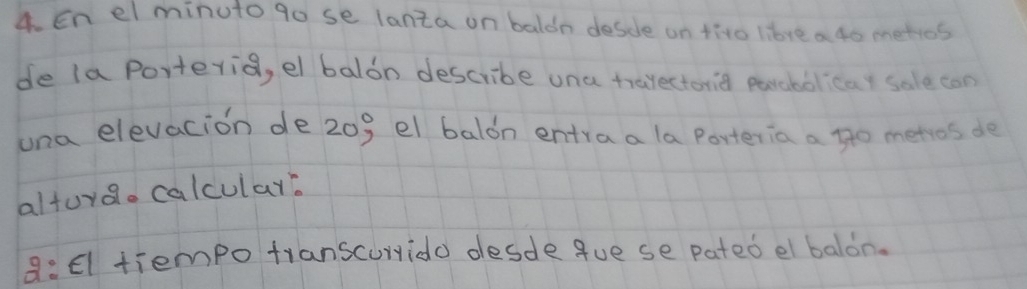 4. En el minuto 90 se lanza un balón desde un tiro libre a 40 metros
de la Portería, el balón describe una trayectoria parabólica y sale con
una elevación de 20°, el balón entra a la Portería a metros de
altura. calcular:
a: El tiempo transcurrido desde que se pateó el balón.